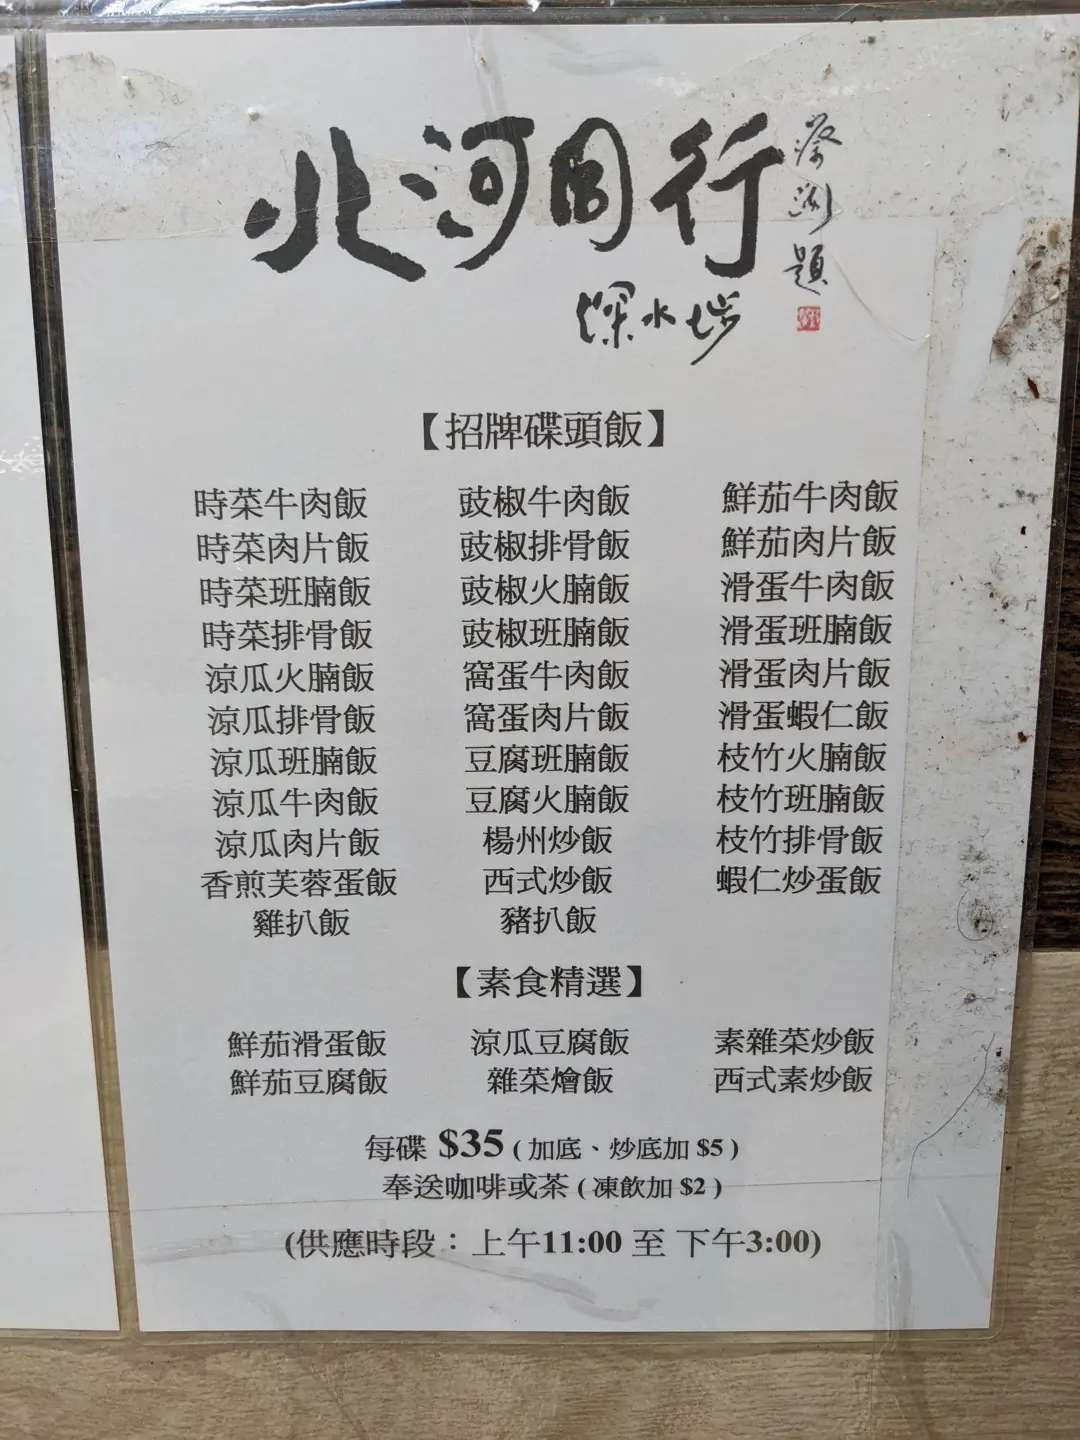 北河同行
蔡瀾題
深水埗
【招牌碟頭飯】
時菜牛肉飯 豉椒牛肉飯 鮮茄牛肉飯
時菜肉片飯 豉椒排骨飯 鮮茄肉片飯
時菜班腩飯 豉椒火腩飯 滑蛋牛肉飯
時菜排骨飯 豉椒班腩飯 滑蛋班腩飯
涼瓜火腩飯 窩蛋牛肉飯 滑蛋肉片飯
涼瓜排骨飯 窩蛋肉片飯 滑蛋蝦仁飯
涼瓜班腩飯 豆腐班腩飯 枝竹火腩飯
涼瓜牛肉飯 豆腐火腩飯 枝竹班腩飯
涼瓜肉片飯 楊州炒飯 枝竹排骨飯
香煎芙蓉蛋飯 西式炒飯 蝦仁炒蛋飯
雞扒飯 豬扒飯
【素食精選】
鮮茄滑蛋飯 涼瓜豆腐飯 素雜菜炒飯
鮮茄豆腐飯 雜菜燴飯 西式素炒飯
每碟 $35 ( 加底、炒底加 $5 )
奉送咖啡或茶 ( 凍飲加 $2 )
(供應時段：上午11:00 至 下午3:00)